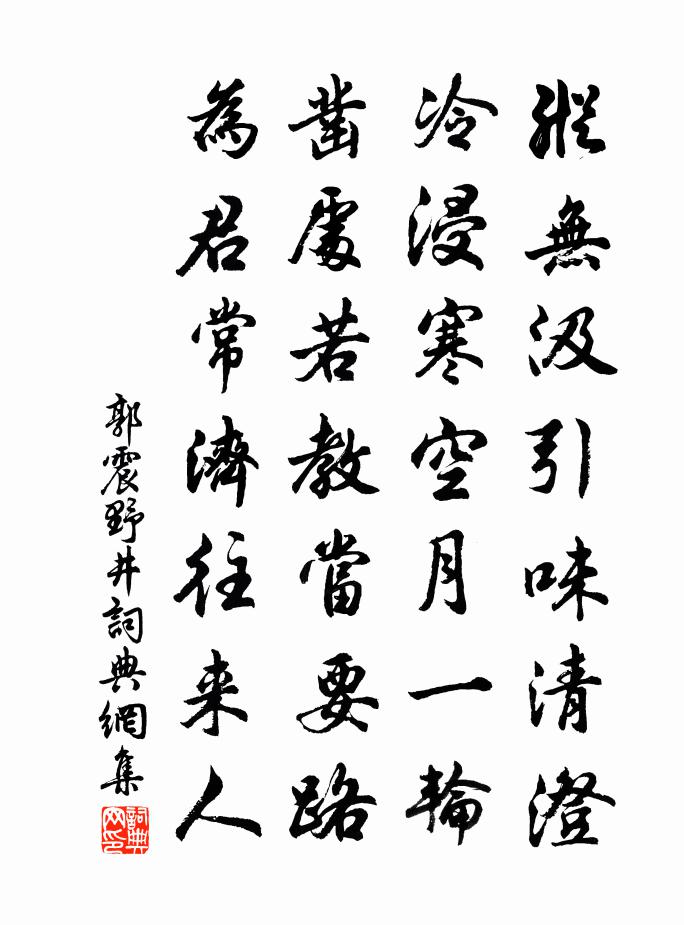 縱無汲引味清澄
冷浸寒空月一輪
鑿處若教當要路
為君常濟往來人
郭震野井詞典網集
詞典网印